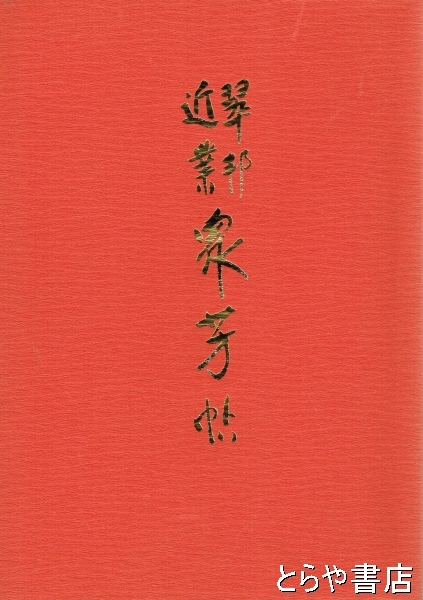 翠邦
近業
衆芳帖
とらや書店